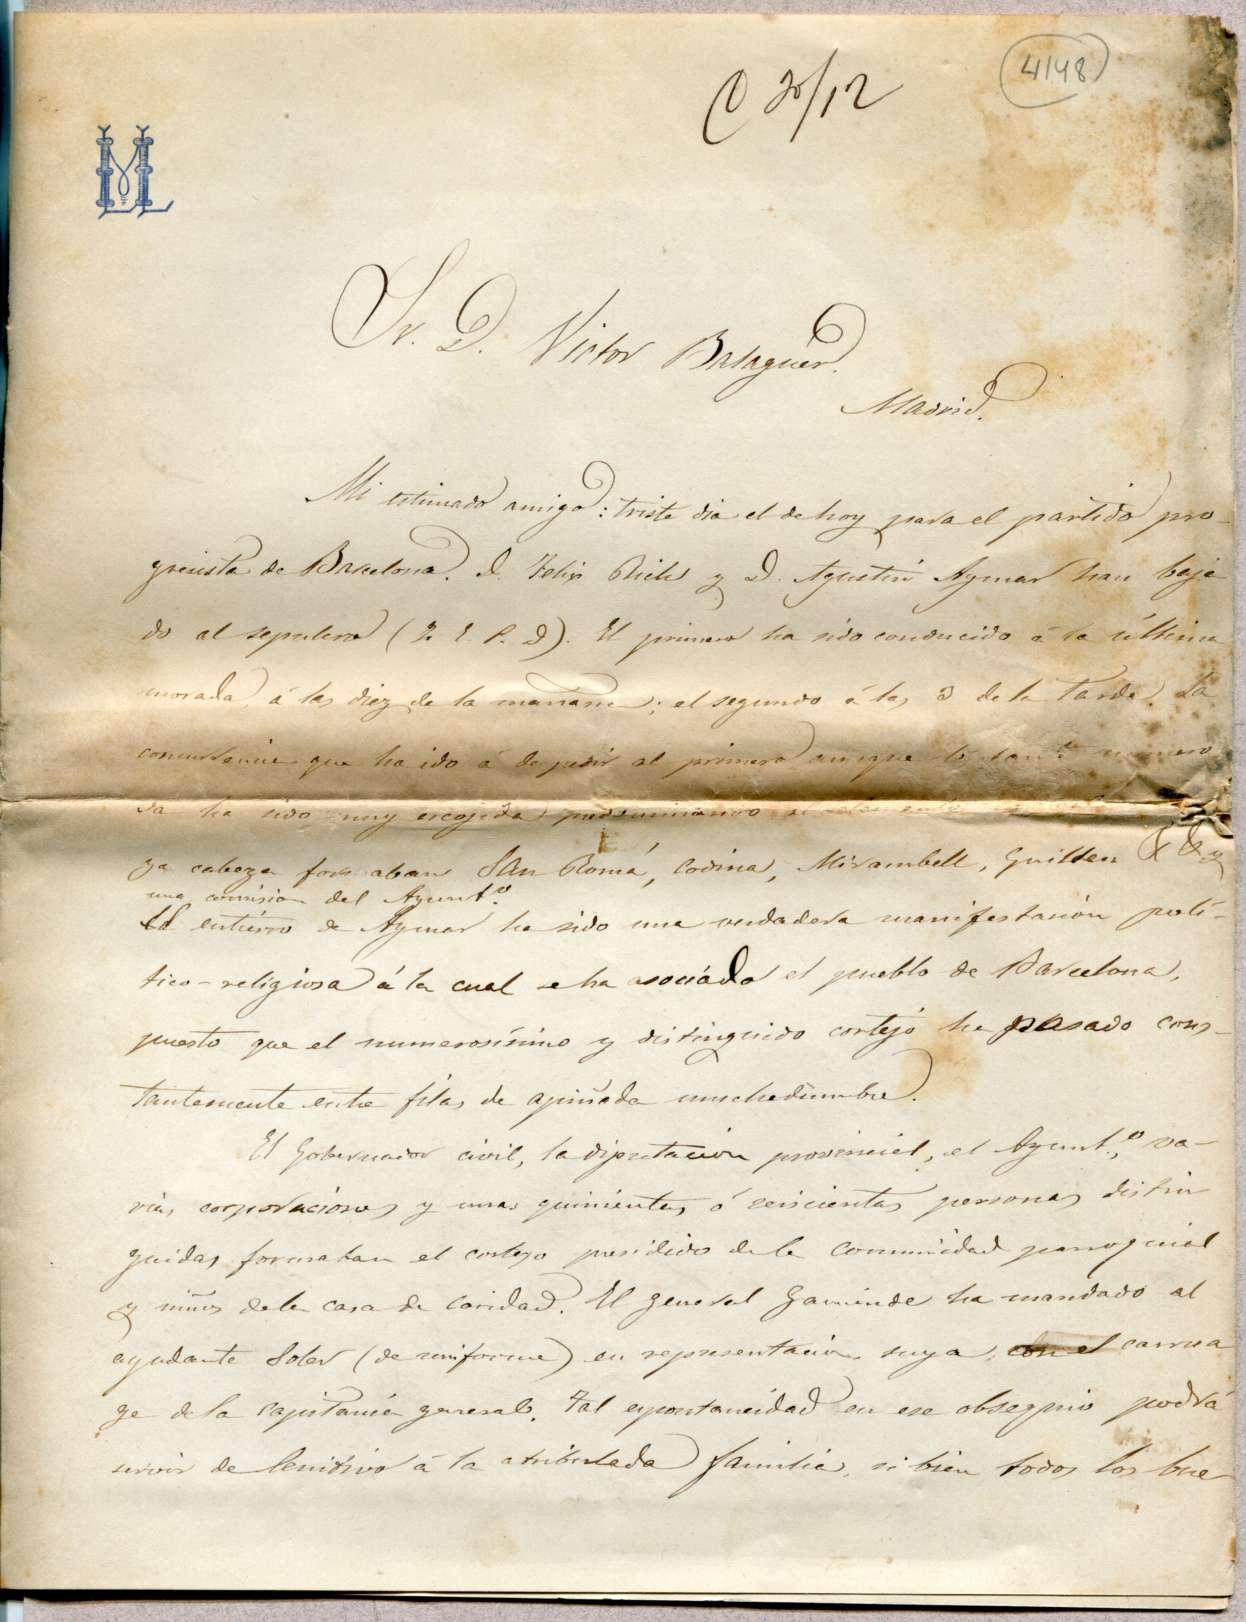 4148
C 20/12
ML
Sr. D. Victor Balaguer.
Madrid.
Mi estimado amigo: triste dia el de hoy para el partido pro-
gresista de Barcelona. D. Felix Rich y D. Agustin Aymar han baja
do al sepulcro (Q. E. P. D). El primero ha sido conducido á la última
morada á las diez de la mañana; el segundo á las 3 de la tarde. La
concurrencia que ha ido á despedir al primero aunque no tant numero
sa ha sido muy escojida
ya cabeza formaban San Romá, Codina, Mirambell, Guillen &. &. y
una comision del Ayunt.º
El entierro de Aymar ha sido una verdadera manifestación polí-
tico-religiosa á la cual se ha asociado el pueblo de Barcelona,
puesto que el numerosísimo y distinguido cortejo ha pasado cons-
tantemente entre filas de apiñada muchedumbre.
El Gobernador civil, la diputación provincial, el Ayunt.º, va-
rias corporaciones y unas quinientas ó seiscientas personas distin
guidas formaban el cortejo presidido de la comunidad parroquial
y niños de la casa de caridad. El general Gaminde ha mandado al
ayudante Soler (de uniforme) en representación suya, con el carrua
ge de la capitanía general. Tal espontaneidad en ese obsequio podrá
servir de lenitivo á la atribulada familia, si bien todos los bue